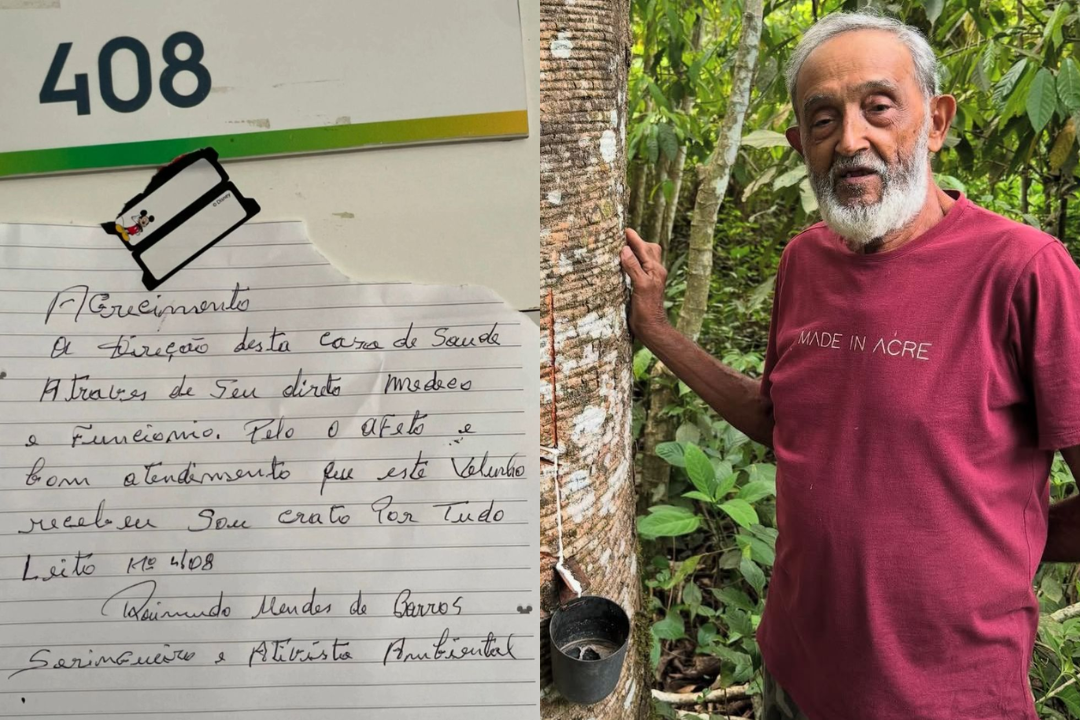 408
© Disney
Agrecimento
A direção desta casa de Saude
Atraves de Seu direto medeco
e Funcionio. Pelo o afeto e
bom atendimento que este Velinho
recebeu Sou grato Por Tudo
Leito Nº 408
Raimundo Mendes de Barros
Seringueiro e Ativista Ambiental
MADE IN ACRE